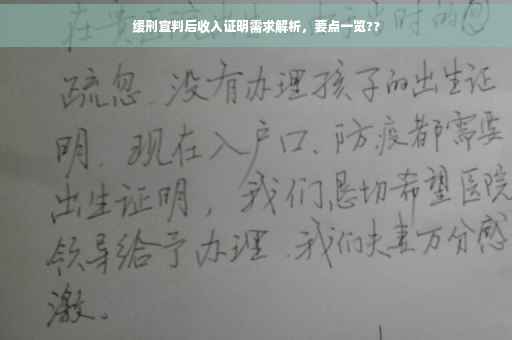 缓刑宣判后收入证明需求解析，要点一览??
在贵 时的
疏忽.没有办理孩子的出生证
明.现在入户口、防疫都需要
出生证明，我们恳切希望医院
领导给予办理.我们夫妻万分感
激。